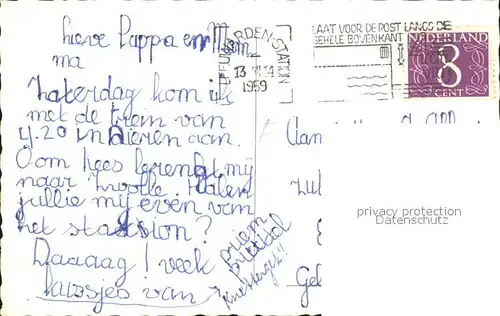 Lieve Pappa en Mam
ma
Zaterdag kom ik
met de trein van
4.20 in Dieren aan.
Oom Kees brengt mij
naar Zwolle. Halen
jullie mij even van
het station?
Daaaag! veel
kusjes van
LEEUWARDEN-STATION
13 VI 14
1959
LAAT VOOR DE POST LANGS DE
GEHELE BOVENKANT
NEDERLAND
8
CENT
Aan
Zu
Gel
privacy protection
Datenschutz